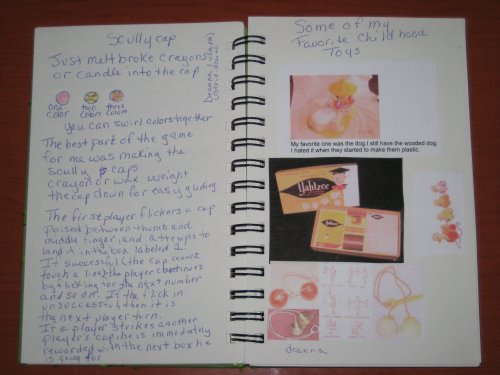 Scully cap
Just melt broke crayons
or candle into the cap
one color
two colors
three colors
You can swirl colors together
The best part of the game
for me was making the
Scully caps.
crayon or wax weight
the cap down for easy gliding
The first player flickers a cap
poised between thumb and
middle finger, and attempts to
land it in the box labeled 1.
If successful (the cap cannot
touch a line) the player continues
by flicking for the next number
and so on. If the flick in
unsuccessful, then it is
the next player turn.
If a player strikes another
player's cap, he is immediately
rewarded with the next box he
is going for
Deanna
Some of my
Favorite Childhood
Toys
My favorite one was the dog I still have the wooded dog.
I hated it when they started to make them plastic
Yahtzee
deanna